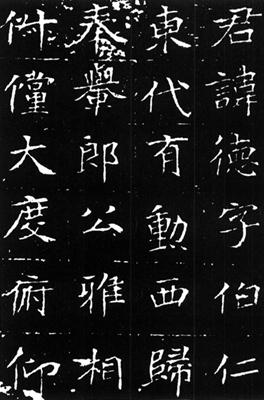 君諱德字伯仁
東代有動西歸
舉郎公雅相
儻大度俯仰